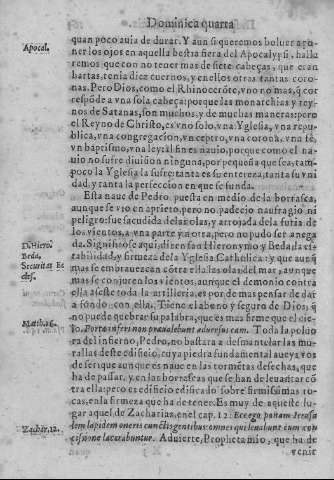 Dominica quarta
quan poco auia de durar. Y aun si queremos boluer a po-
Apocal.
ner los ojos en aquella bestia fiera del Apocalypsi, halla
remos que con no tener mas de siete cabeças, que eran
hartas, tenia diez cuernos, y en ellos otras tantas coro-
nas. Pero Dios, como el Rhinocerōte, vno no mas, q̄ cor
respōde a vna sola cabeça: porque las monarchias y rey-
nos de Satanas, son muchos, y de muchas maneras: pero
el Reyno de Christo, es vno solo, vna Yglesia, vna repu-
blica, vna congregacion, vn ceptro, vna corona, vna fè,
vn baptismo, vna ley: al fin es nauio, porque como el na-
uio no sufre diuision ninguna, por pequeña que sea, tam-
poco la Yglesia la sufre: tanta es su entereza, tanta su vni
dad, y tanta la perfeccion en que se funda.
Esta naue de Pedro, puesta en medio de la borrasca,
aunque se vio en aprieto, pero no padecio naufragio ni
peligro: fue sacudida de las olas, y arrojada de la furia de
los vientos, a vna parte y a otra, pero no pudo ser anega-
D. Hiero.
da. Significose aqui, dizen san Hieronymo y Beda, la es-
Beda.
tabilidad, y firmeza de la Yglesia Catholica: y que aunq̄
Securitas Ec
mas se embrauezcan cōtra ella las olas del mar, aunque
cles.
mas se conjuren los vientos, aunque el demonio contra
ella aseste toda la artilleria, es por de mas pensar de dar
a fondo con ella. Tiene el abono y seguro de Dios; q̄
no puede quebrar su palabra, que es mas firme que el cie-
Matth. 16.
lo. Portæ inferi non præualebunt aduersus eam. Toda la poluo
ra del infierno, Pedro, no bastara a desmantelar las mu-
rallas deste edificio, cuya piedra fundamental aueys vos
de ser: que aunque es naue en las tormētas desechas, que
ha de passar, y en las borrascas que se han de leuantar cō
tra ella: pero es edificio edificado sobre firmissimas ro-
cas, en la firmeza que ha de tener. Es muy de aqueste lu-
gar aquel de Zacharias, en el cap. 12. Ecce ego ponam Ierusa
Zachar. 12.
lem lapidem oneris cunctis gentibus: omnes qui leuabunt eam con
cisione lacerabuntur. Aduierte, Propheta mio, que ha de
venir